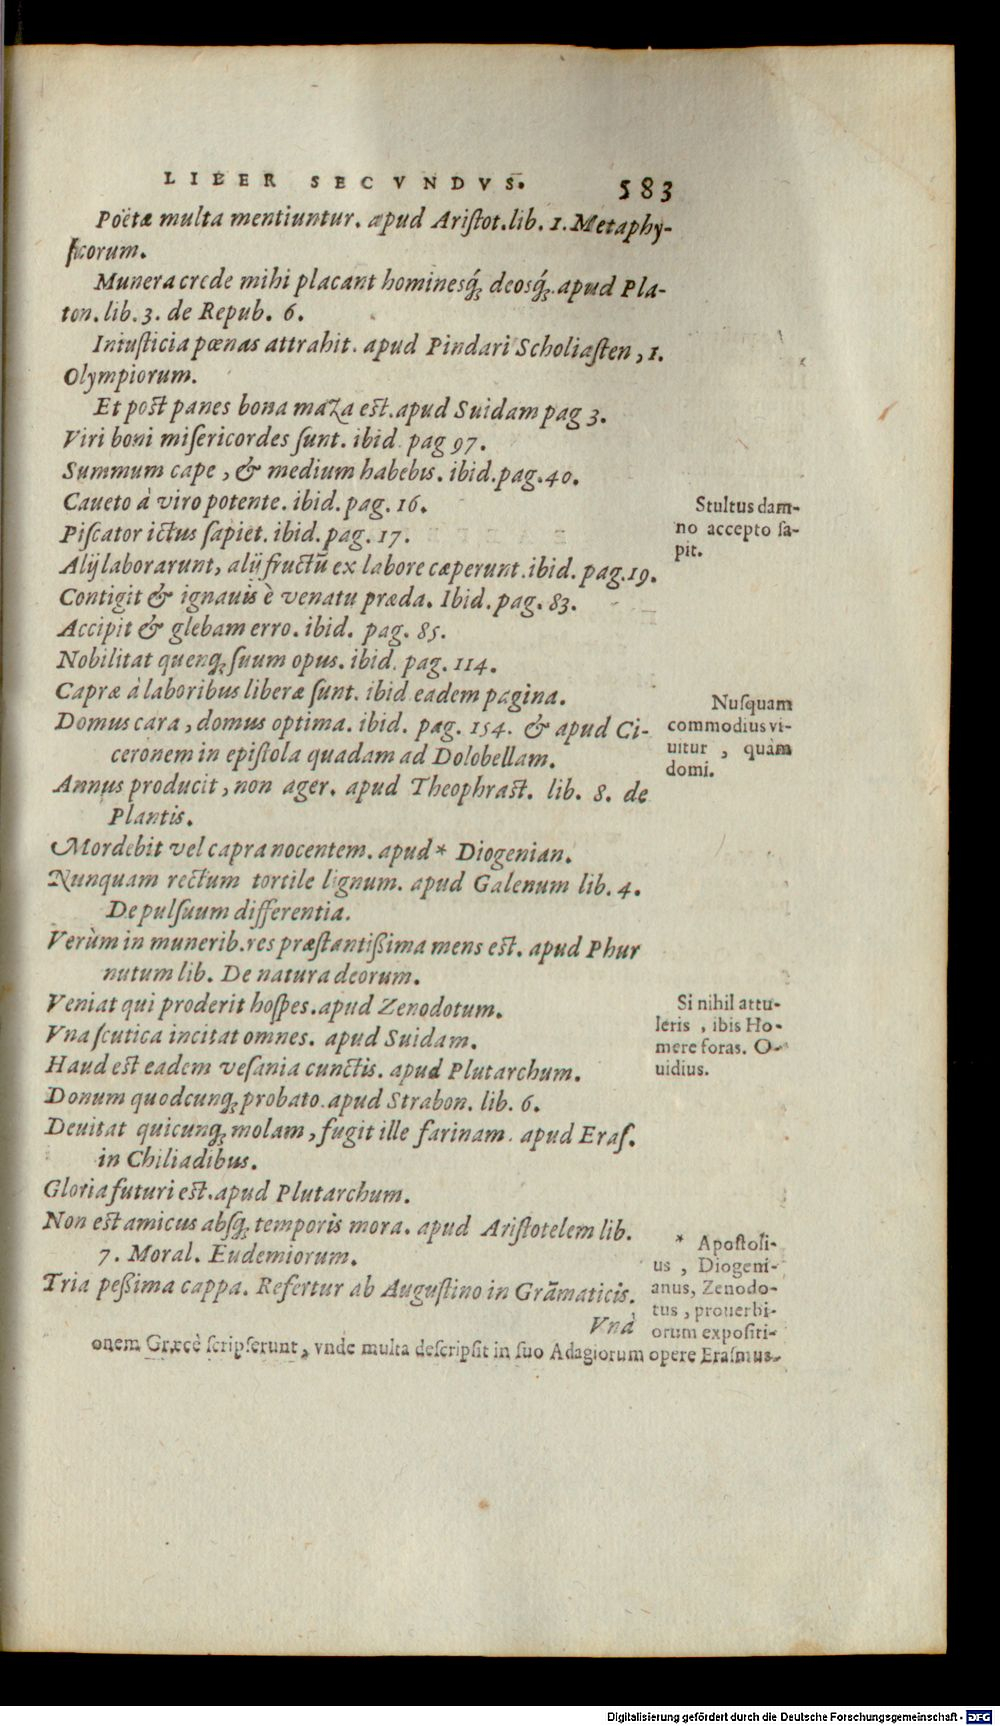 LIBER SECVNDVS. 583
Poëtæ multa mentiuntur. apud Aristot. lib. 1. Metaphy-
sicorum.
Munera crede mihi placant hominesq́; deosq́;. apud Pla-
ton. lib. 3. de Repub. 6.
Iniusticia pœnas attrahit. apud Pindari Scholiasten, 1.
Olympiorum.
Et post panes bona maza est. apud Suidam pag 3.
Viri boni misericordes sunt. ibid pag 97.
Summum cape, & medium habebis. ibid. pag. 40.
Caueto à viro potente. ibid. pag. 16.
Piscator ictus sapiet. ibid. pag. 17.
Alij laborarunt, alij fructū ex labore cæperunt. ibid. pag. 19.
Contigit & ignauis è venatu præda. Ibid. pag. 83.
Accipit & glebam erro. ibid. pag. 85.
Nobilitat quenq; suum opus. ibid. pag. 114.
Capræ à laboribus liberæ sunt. ibid eadem pagina.
Domus cara, domus optima. ibid. pag. 154. & apud Ci-
ceronem in epistola quadam ad Dolobellam.
Annus producit, non ager. apud Theophrast. lib. 8. de
Plantis.
Mordebit vel capra nocentem. apud * Diogenian.
Nunquam rectum tortile lignum. apud Galenum lib. 4.
De pulsuum differentia.
Verùm in munerib. res præstantißima mens est. apud Phur
nutum lib. De natura deorum.
Veniat qui proderit hospes. apud Zenodotum.
Vna scutica incitat omnes. apud Suidam.
Haud est eadem vesania cunctis. apud Plutarchum.
Donum quodcunq; probato. apud Strabon. lib. 6.
Deuitat quicunq; molam, fugit ille farinam. apud Eras.
in Chiliadibus.
Gloria futuri est. apud Plutarchum.
Non est amicus absq; temporis mora. apud Aristotelem lib.
7. Moral. Eudemiorum.
Tria peßima cappa. Refertur ab Augustino in Grāmaticis.
Vnà
Stultus dam-
no accepto sa-
pit.
Nusquam
commodius vi-
uitur, quàm
domi.
Si nihil attu-
leris, ibis Ho-
mere foras. O-
uidius.
* Apostoli-
us, Diogeni-
anus, Zenodo-
tus, prouerbi-
orum expositi-
onem Græcè scripserunt, vnde multa descripsit in suo Adagiorum opere Erasmus.
Digitalisierung gefördert durch die Deutsche Forschungsgemeinschaft - DFG